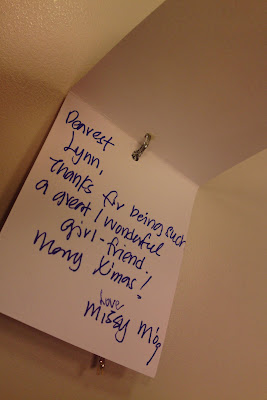 Dearest
Lynn,
thanks for being such
a great / wonderful
girl-friend.
Merry X'mas!
Love,
Missy